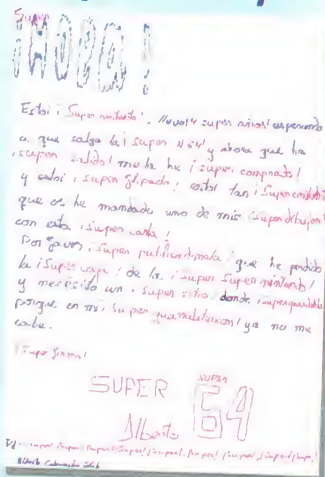 Super
¡HOPA!
Estoi ¡Super nintento!. llevo 14 super años! esperando
a que salga la ¡super N 64! y ahora que ha
¡super salido! me la he ¡super comprado!
y estoi ¡super flipado! estoi tan ¡Super contento!
que os he mandado uno de mis ¡superdibujos!
con esta ¡super carta!
Por favor, ¡super publicadmela! que he perdido
la ¡super capa! de la ¡super Super nintento!
y necesito un ¡super sitio donde
porque en mi ¡super ya no me
cabe.
¡Super firma!
SUPER SUPER
64
Alberto
¡super! ¡super! ¡super! ¡super! ¡super! ¡super! ¡super! ¡super!
Alberto